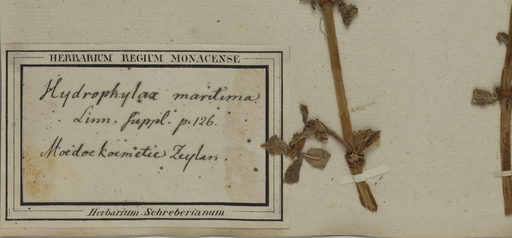 HERBARIUM REGIUM MONACENSE
Hydrophylax maritima.
Linn. suppl. p. 126.
Moedoekoemetie Zeylan.
Herbarium Schreberianum.